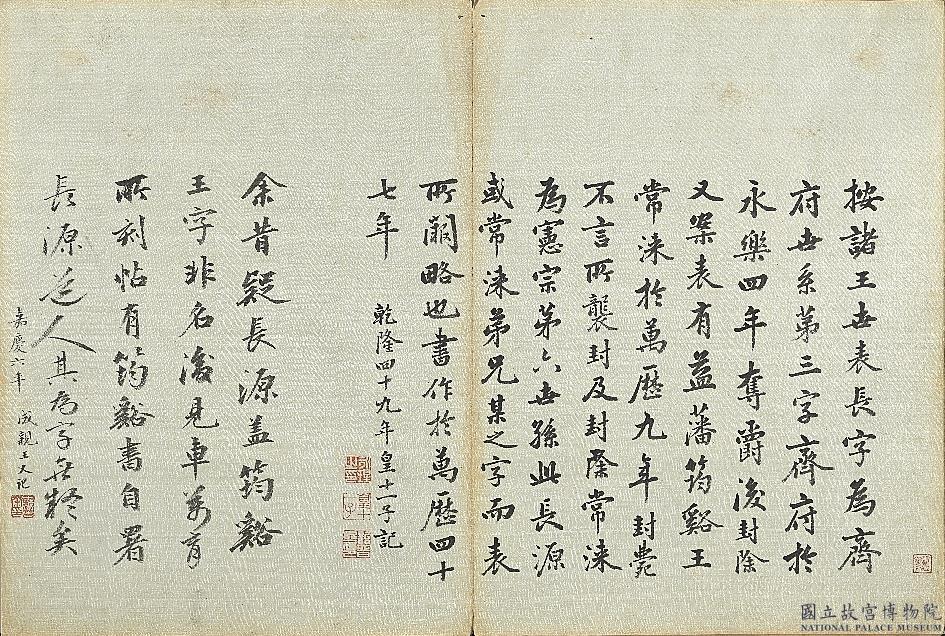 按諸王世表長字為齊
府世系第三字齊府於
永樂四年奪爵後封除
又案表有益藩筠谿王
常涞於萬歷九年封薨
不言所襲封及封除常涞
為憲宗第六世孫此長源
或常涞弟兄某之字而表
所闕略也書作於萬歷四十
七年 乾隆四十九年皇十一子記
余昔疑長源蓋筠谿
王字非名後見車萬育
所刻帖有筠谿書自署
長源道人其為字無疑矣
嘉慶六年 成親王又記
國立故宮博物院
NATIONAL PALACE MUSEUM